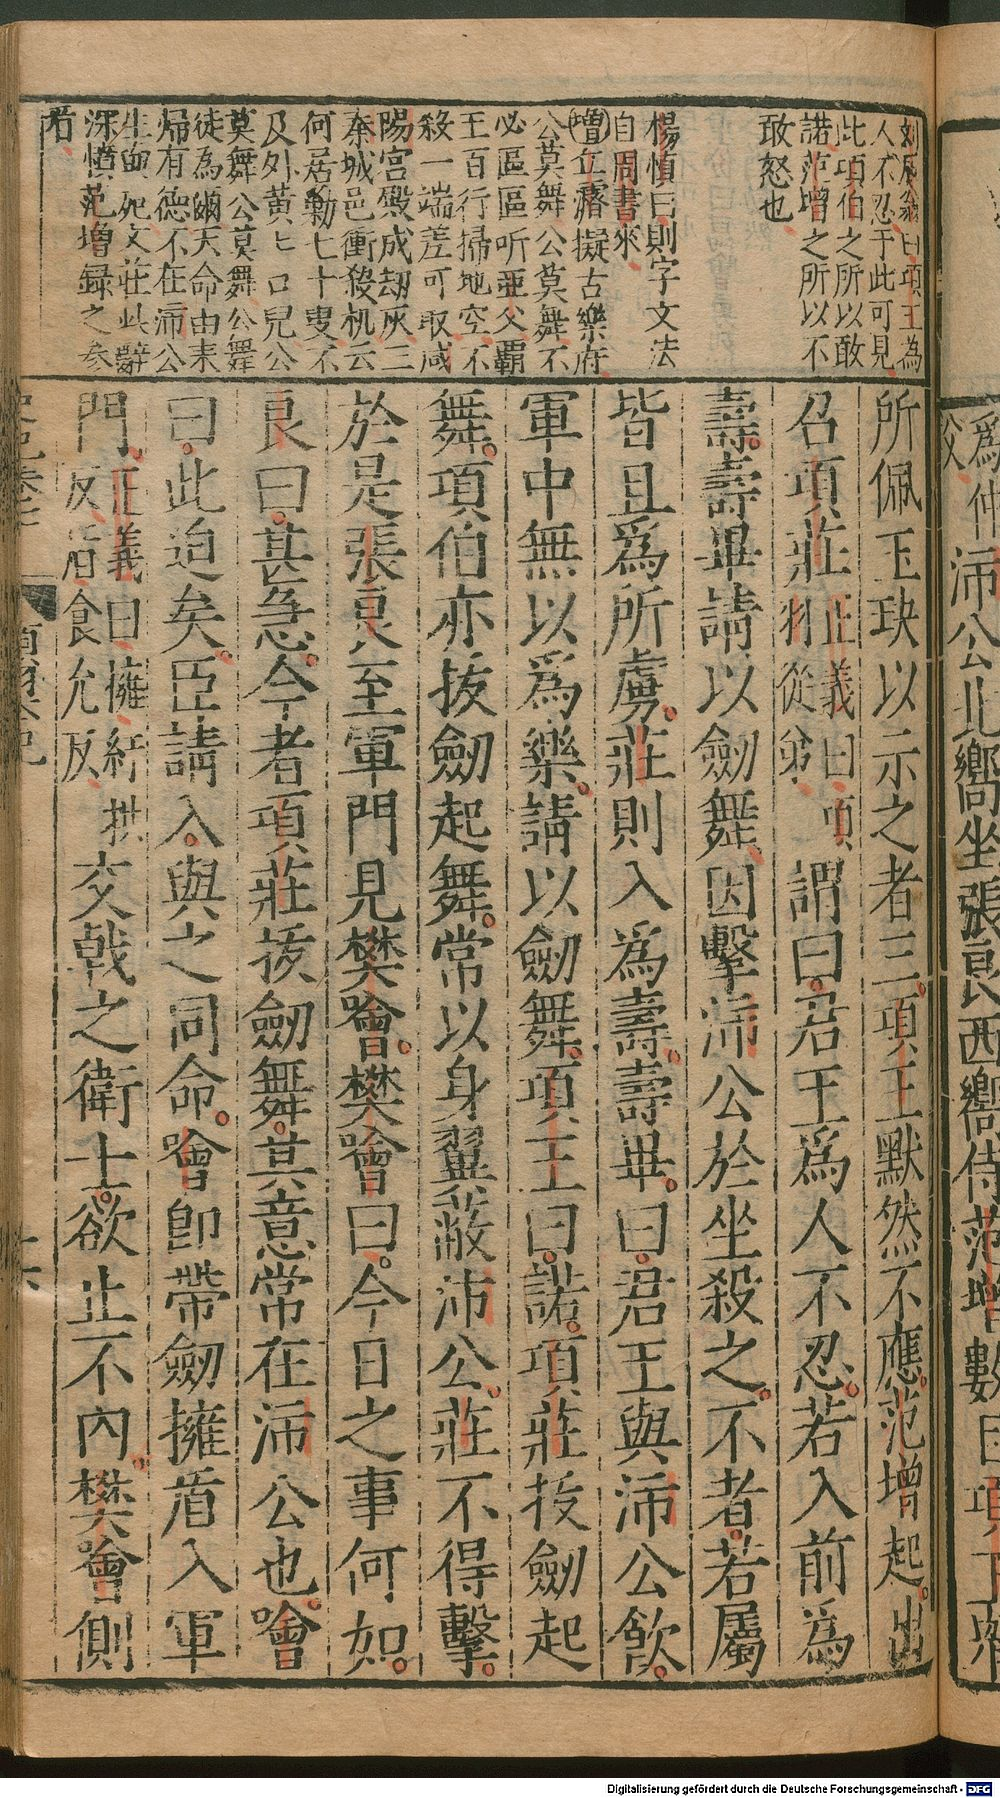 刘辰翁曰項王為
人不忍于此可見
此項伯之所以敢
諾范增之所以不
敢怒也
楊慎曰則字文法
自周書來
增立齋擬古樂府
公莫舞公莫舞不
必區區听亜父覇
王百行掃地空不
殺一端差可取咸
陽宮殿成劫灰三
秦城邑衝殺机云
何居勦七十叟不
及外黄七口兒公
莫舞公莫舞公舞
徒為爾天命由来
帰有德不在沛公
生與死文莊此辭
深憤范增録之参
看
所佩玉玦以示之者三項王默然不應范增起出
召項莊正義曰項羽從弟謂曰君王爲人不忍若入前為
壽壽畢請以劒舞因擊沛公於坐殺之不者若屬
皆且爲所虜莊則入為壽壽畢曰君王與沛公飲
軍中無以爲樂請以劒舞項王曰諾項莊拔劒起
舞項伯亦拔劒起舞常以身翼蔽沛公莊不得擊
於是張良至軍門見樊噲樊噲曰今日之事何如
良曰甚急今者項莊拔劒舞其意常在沛公也噲
曰此迫矣臣請入與之同命噲即帶劒擁盾入軍
門正義曰擁紆拱反盾食允反交戟之衛士欲止不內樊噲側
史記卷七 項羽本紀 十六
為仲父沛公北嚮坐張良西嚮侍范增數目項王舉
Digitalisierung gefördert durch die Deutsche Forschungsgemeinschaft - DFG